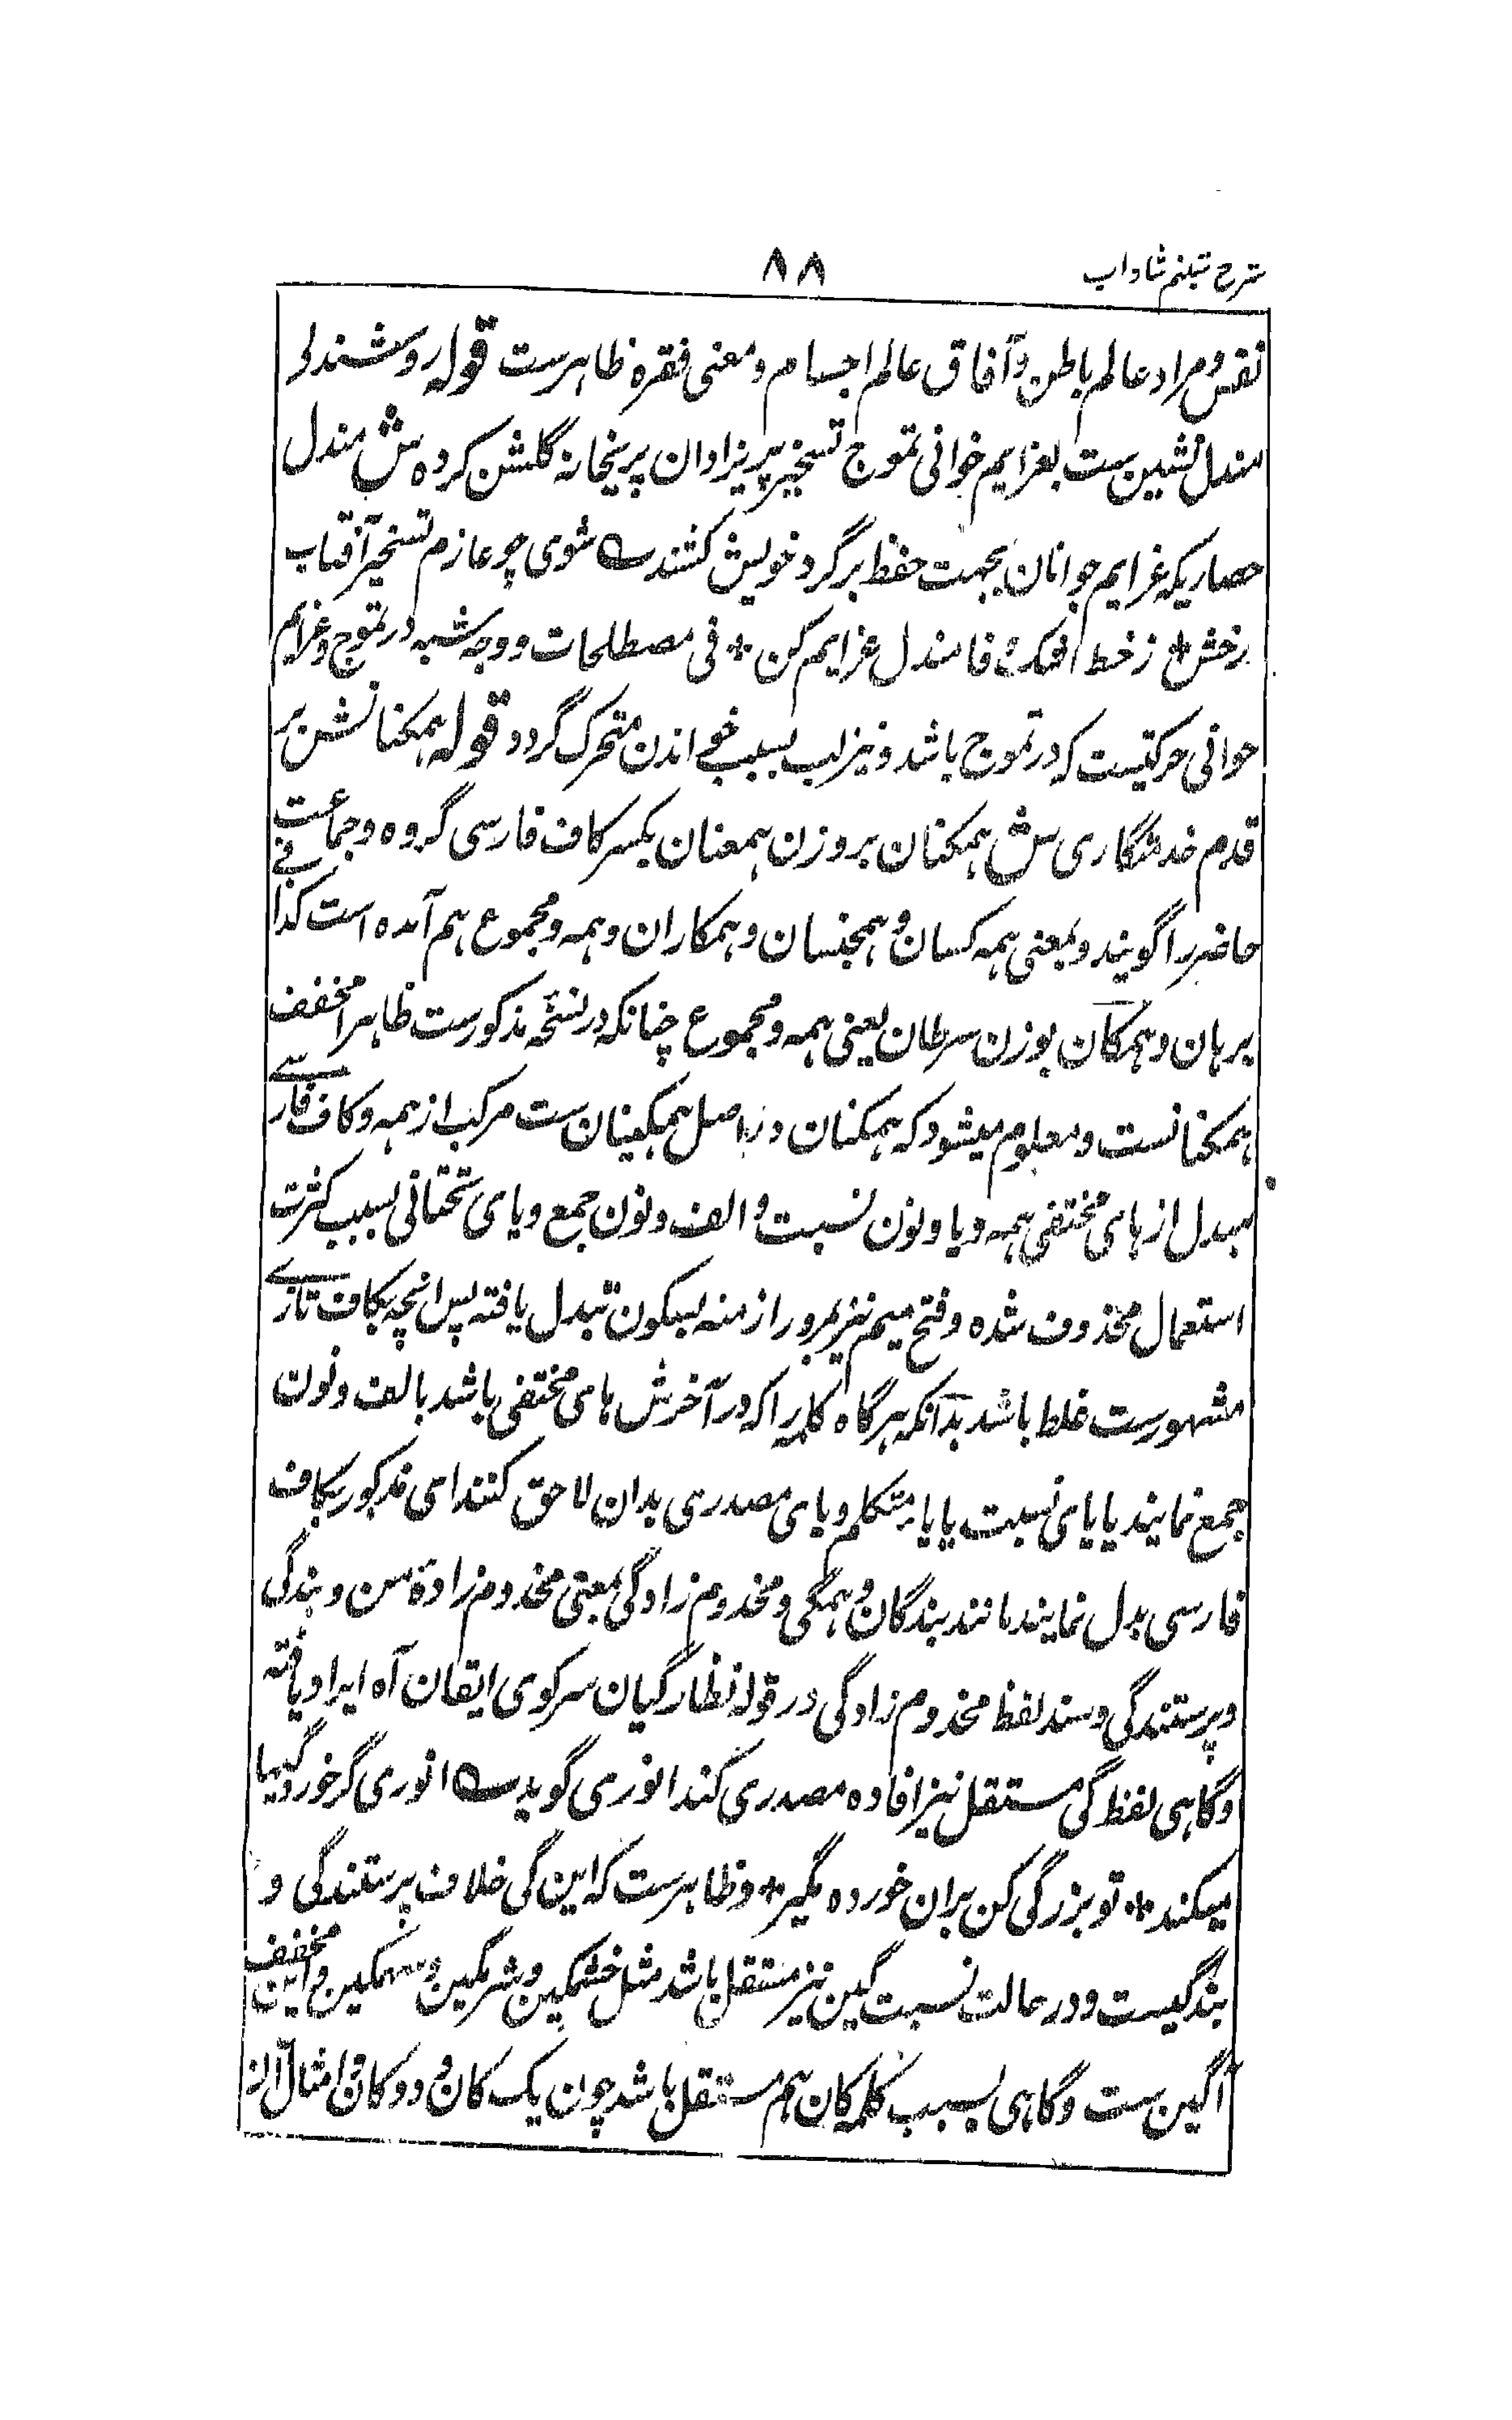 شرح شبنم شاداب
۸۸
نفس و مراد عالم باطن و آفاق عالم اجسام و معنی فقره ظاهرست قوله روشندلے
مندل نشین ست بعزایم خوانی تموج تسخیر پریزادان پریخانه گلشن کرده ش مندل
حصاریکه عزایم جوانان بجهت حفظ برگرد خویش کشند ؎ شوی چو عازم تسخیر آفتاب
رخش * ز خط افکن فا مندل عزایم کن * فی مصطلحات و وجه شبه در تموج و عزایم
خوانی حرکتیست که در تموج باشد و نیز لب بسبب خواندن متحرک گردد قوله همکنانش بر
قدم خدمتگاری ش همکنان بروزن همعنان بکسر کاف فارسی گروه و جماعت
حاضر را گویند و بمعنی همه کسان و همجنسان و همکاران و همه و مجموع هم آمده است کذا فے
برهان و همکان بوزن سرطان یعنی همه و مجموع چنانکه در نسخه مذکورست ظاهرا مخفف
همکنانست و معلوم میشود که همکنان در اصل همگینان ست مرکب از همه و کاف فارسے
مبدل از های مختفی همه و یا و نون نسبت و الف و نون جمع و یای تحتانی بسبب کثرت
استعمال محذوف شده و فتح میم نیز بمرور ازمنه بسکون تبدل یافته پس انچه بکاف تازے
مشهورست غلط باشد بدانکه هرگاه کلمه را که در آخرش های مختفی باشد بالف و نون
جمع نمایند یا یای نسبت یا یا متکلم و یای مصدری بدان لاحق کنند های مذکور بکاف
فارسی بدل نمایند مانند بندگان و همگی و مخدوم زادگی بمعنی مخدوم زادهٔ من و بندگی
و پرستندگی و سند لفظ مخدوم زادگی در قوله نظارگیان سرکوی ایقان آه ایراد یافته
و گاهی لفظ گی مستقل نیز افاده مصدری کند انوری گوید ؎ انوری گر خوردگیها
میکند * تو بزرگی کن بران خورده مگیر * و ظاهرست که این گی خلاف پرستندگی و
بندگیست و در حالت نسبت گین نیز مستقل باشد مثل خشمگین و شرمگین و سهمگین و این مخفف
آگین ست و گاهی بسبب کلمه کان هم مستقل باشد چون یک کان و دوکان و امثال آن